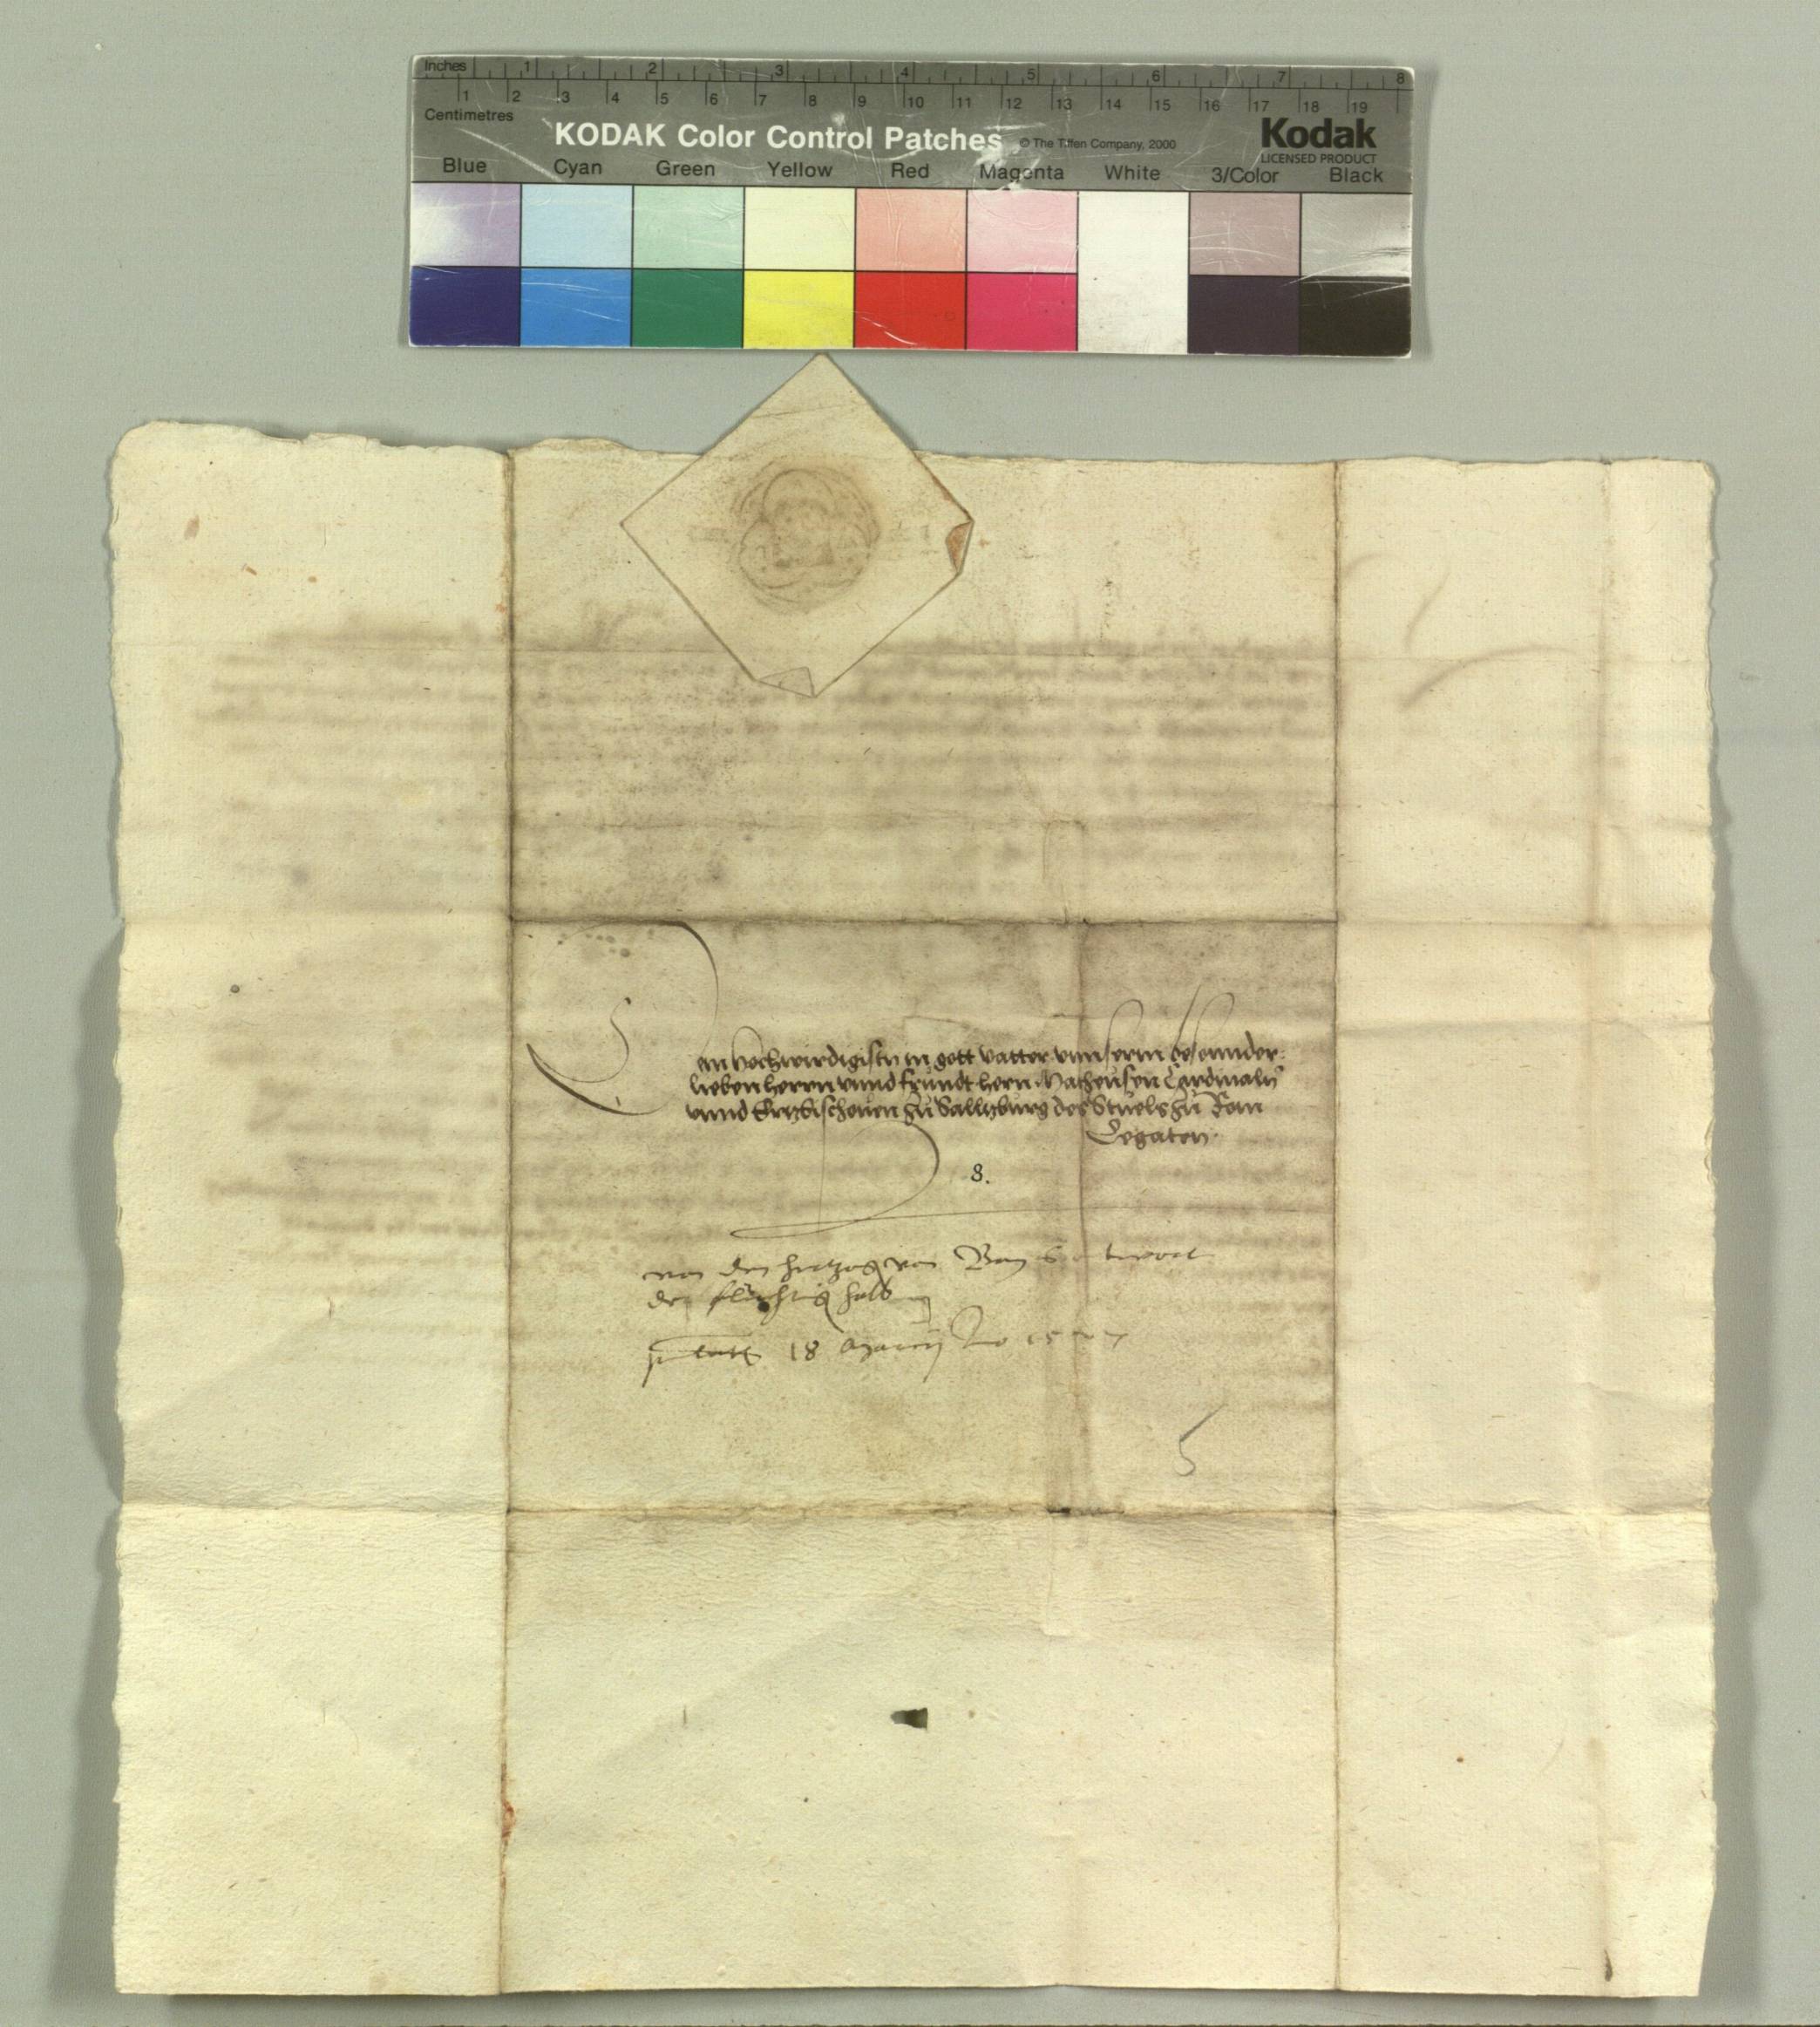 Inches 1 2 3 4 5 6 7 8
1 2 3 4 5 6 7 8 9 10 11 12 13 14 15 16 17 18 19
Centimetres
KODAK Color Control Patches © The Tiffen Company, 2000 Kodak
LICENSED PRODUCT
Blue Cyan Green Yellow Red Magenta White 3/Color Black
Dem hochwirdigistn in gott vatter vnnserm besonnder
lieben herrn vnnd frundt hern Matheusen Cardinaln
vnnd Ertzbischouen zu Salltzburg des Stuels zu Rom
Legaten
8.
von den hertzogen von Bay
der fluchtig halb
18 Marcij 1527